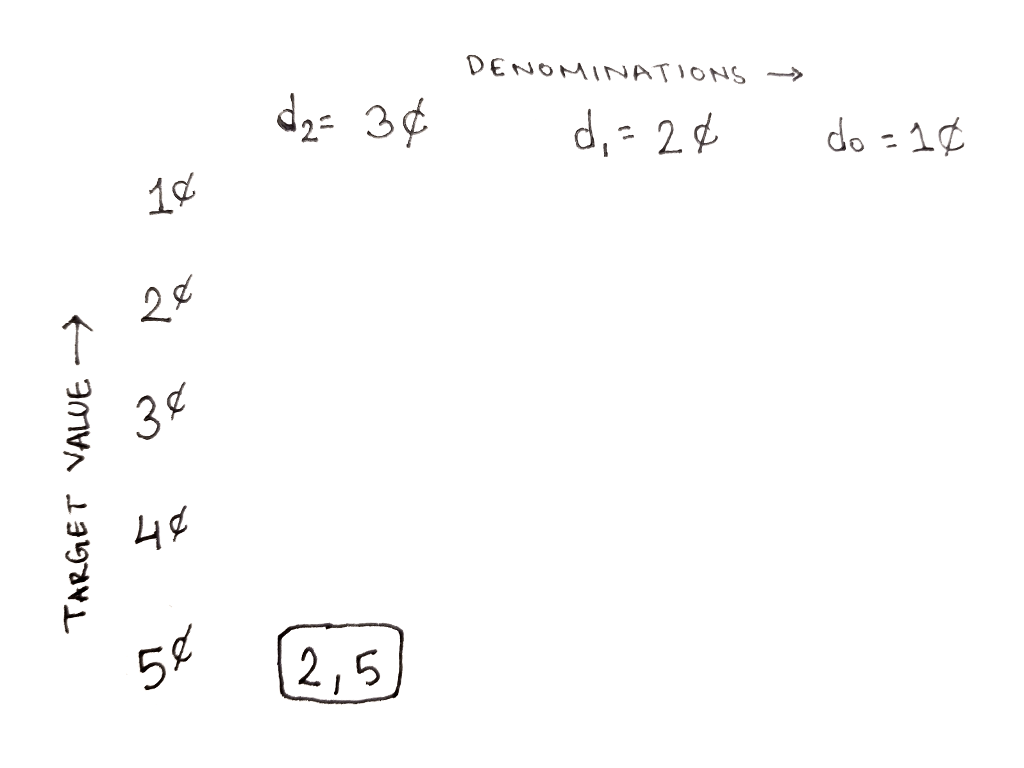 DENOMINATIONS →
d₂= 3¢ d₁= 2¢ d₀ = 1¢
1¢
2¢
3¢
4¢
5¢ 2,5
TARGET VALUE →